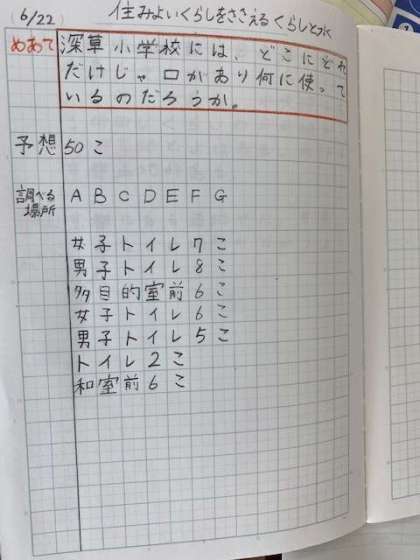 (6/22) 住みよいくらしをささえる くらしと水
めあて 深草小学校には、どこにどれ
だけじゃ口があり何に使って
いるのだろうか。
予想 50こ
調べる場所 A B C D E F G
女子トイレ7こ
男子トイレ8こ
多目的室前6こ
女子トイレ6こ
男子トイレ5こ
トイレ2こ
和室前6こ